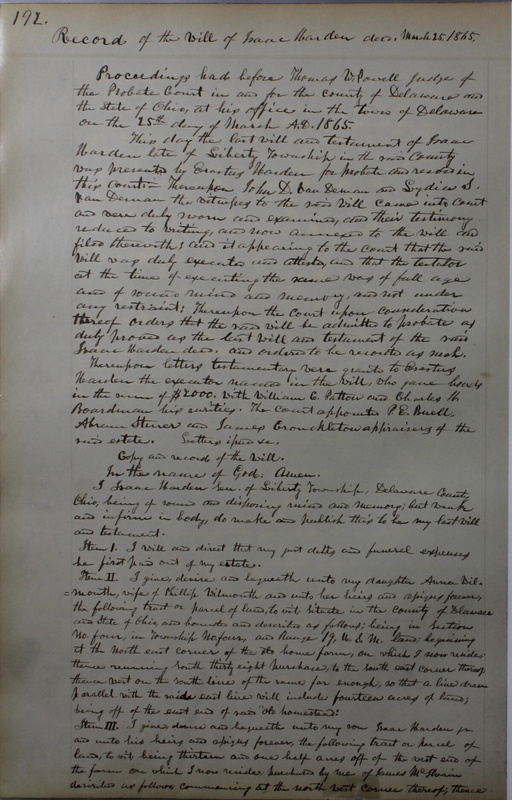 192.
Record of the Will of Isaac Harden decs. March 25, 1865.
Proceedings had before Thomas W. Powell Judge of
the Probate Court in and for the County of Delaware and
the State of Ohio, at his office in the town of Delaware
on the 25th day of March A.D. 1865.
This day the last will and testament of Isaac
Harden late of Liberty Township in the said County
was presented by Erastus Harden for probate and record in
this court. Thereupon John D. Van Deman and Lydia S.
Van Deman the witnesses to the said will came into Court
and were duly sworn and examined, and their testimony
reduced to writing, and now annexed to the will and
filed therewith; and it appearing to the court that the said
will was duly executed and attested, and that the testator
at the time of executing the same was of full age
and of sound mind and memory, and not under
any restraint; Thereupon the Court upon consideration
thereof orders that the said will be admitted to probate as
duly proved as the last will and testament of the said
Isaac Harden decs. and ordered to be recorded as such.
Thereupon letters testamentary were granted to Erastus
Harden the executor named in the will. who gave bonds
in the sum of $2000. With William C. Patton and Charles H.
Boardman his surities. The court appointed P. E. Buell
Abram and James Cronckleton appraisers of the
said estate. Letters issued &c.
Copy and record of the Will.
In the name of God: Amen.
I Isaac Harden Sen. of Liberty Township, Delaware County
Ohio, being of sound and disposing mind and memory; but weak
and infirm in body, do make and publish this to be my last will
and testament.
Item I. I will and direct that my just debts and funeral expenses
be first paid out of my estate.
Item II. I give, devise and bequeath unto my daughter Anna Wil-
=mouth, wife of Phillip Wilmouth and unto her heirs and assigns forever,
the following tract or parcel of land, to wit: Situate in the County of Delaware
and State of Ohio, and bounded and described as follows; being in Section
No. four, in Township No four, and Range 19, U. S. M. Land beginning
at the North east corner of the old home farm, on which I now reside
thence running South thirty eight to the south east corner thereof
thence west on the south line of the same far enough, so that a line drawn
parallel with the said east line will include fourteen acres of land;
being off of the east end of said old homestead.
Item III. I give devise and bequeath unto my son Isaac Harden jr.
and unto his heirs and assigns forever, the following tract or parcel of
land, to wit: being thirteen and one half acres off of the west end of
the farm on which I now reside purchased by me of James McIlvain
described as follows, commencing at the north west corner thereof; thence